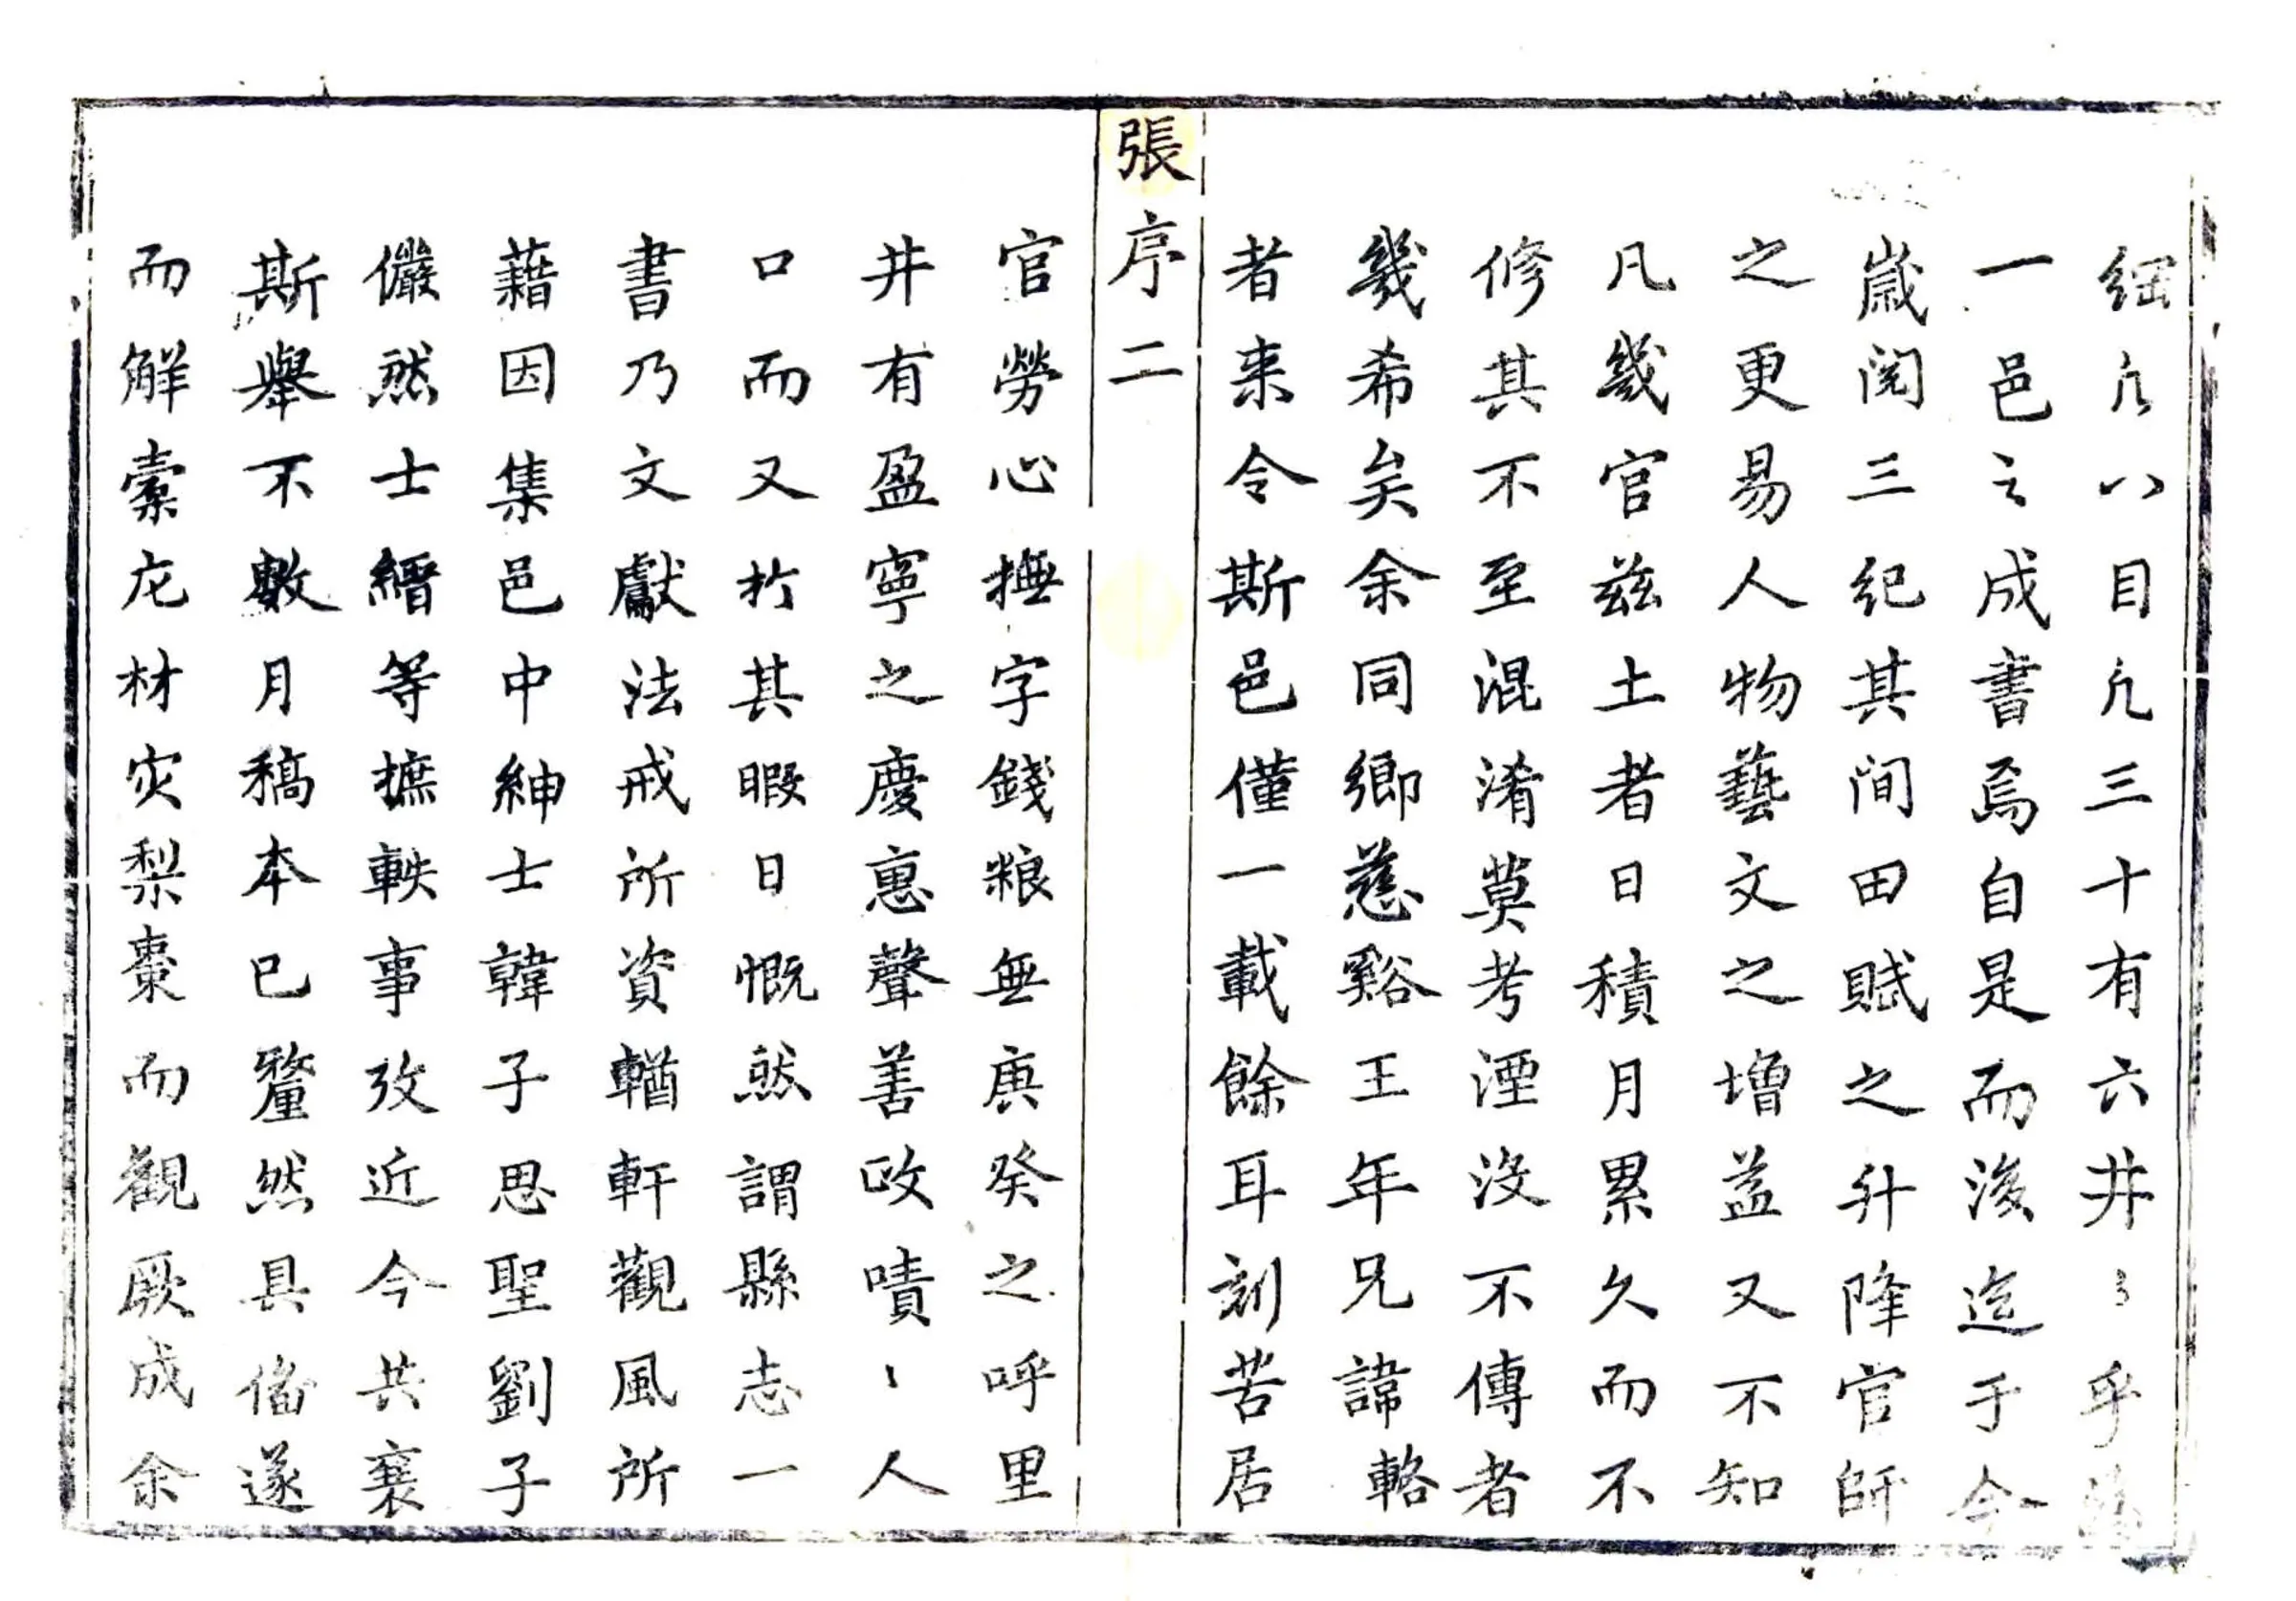 綱凢八目凢三十有六井〻乎
一邑之成書焉自是而後迄于今
歲閱三紀其间田賦之升降官師
之更易人物藝文之增益又不知
凡幾官兹土者日積月累久而不
修其不至混淆莫考湮沒不傳者
幾希矣余同鄉慈谿王年兄諱輅
者来令斯邑僅一載餘耳刻苦居
張序二
官勞心撫字錢粮無庚癸之呼里
井有盈寧之慶惠聲善政嘖〻人
口而又扵其暇日慨然謂縣志一
書乃文獻法戒所資輶軒觀風所
藉因集邑中紳士韓子思聖劉子
儼然士縉等摭軼事攷近今共襄
斯舉不數月稿本已釐然具俻遂
而解索庀材灾梨棗而觀厥成余